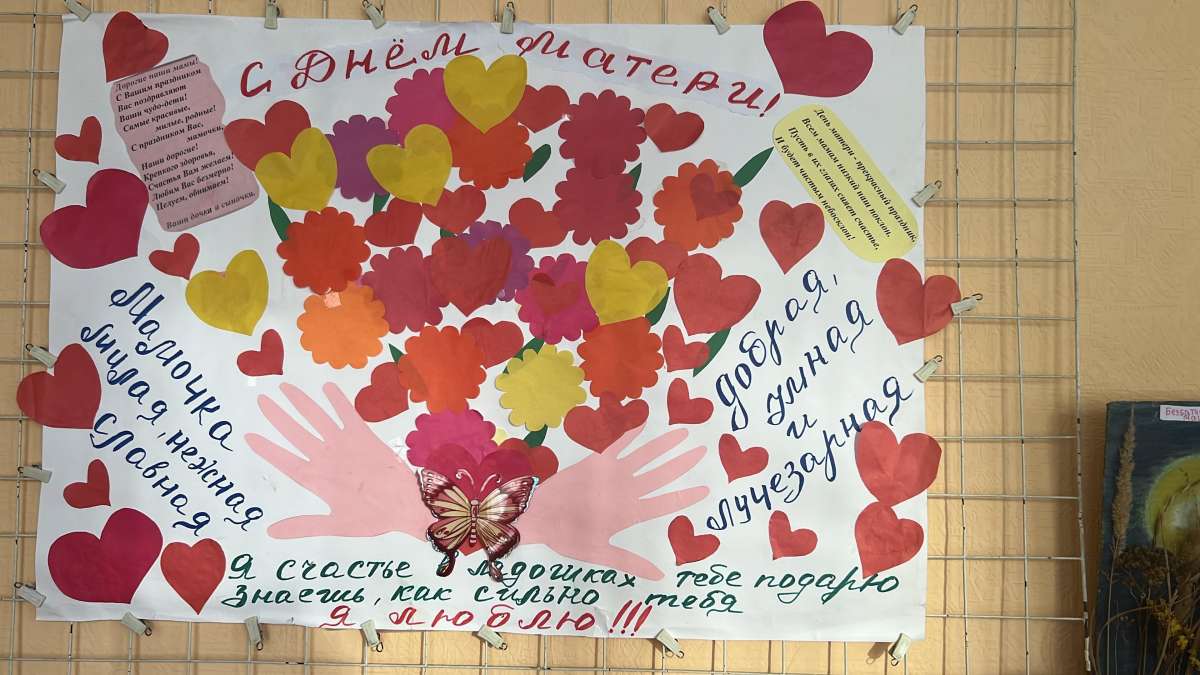 С Днём матери!
Дорогие наши мамы!
С Вашим праздником
Вас поздравляют
Ваши чудо-дети!
Самые красивые,
милые, родные!
С праздником Вас,
мамочки,
Наши дорогие!
Крепкого здоровья,
Счастья Вам желаем!
Любим Вас безмерно!
Целуем, обнимаем!
Ваши дочки и сыночки.
День матери - прекрасный праздник,
Всем мамам низкий наш поклон.
Пусть в их глазах сияет счастье,
И будет чистым небосклон!
Мамочка
милая, нежная
славная
добрая,
умная
и
лучезарная
Я счастье ладошках тебе подарю
Знаешь, как сильно тебя
я люблю!!!